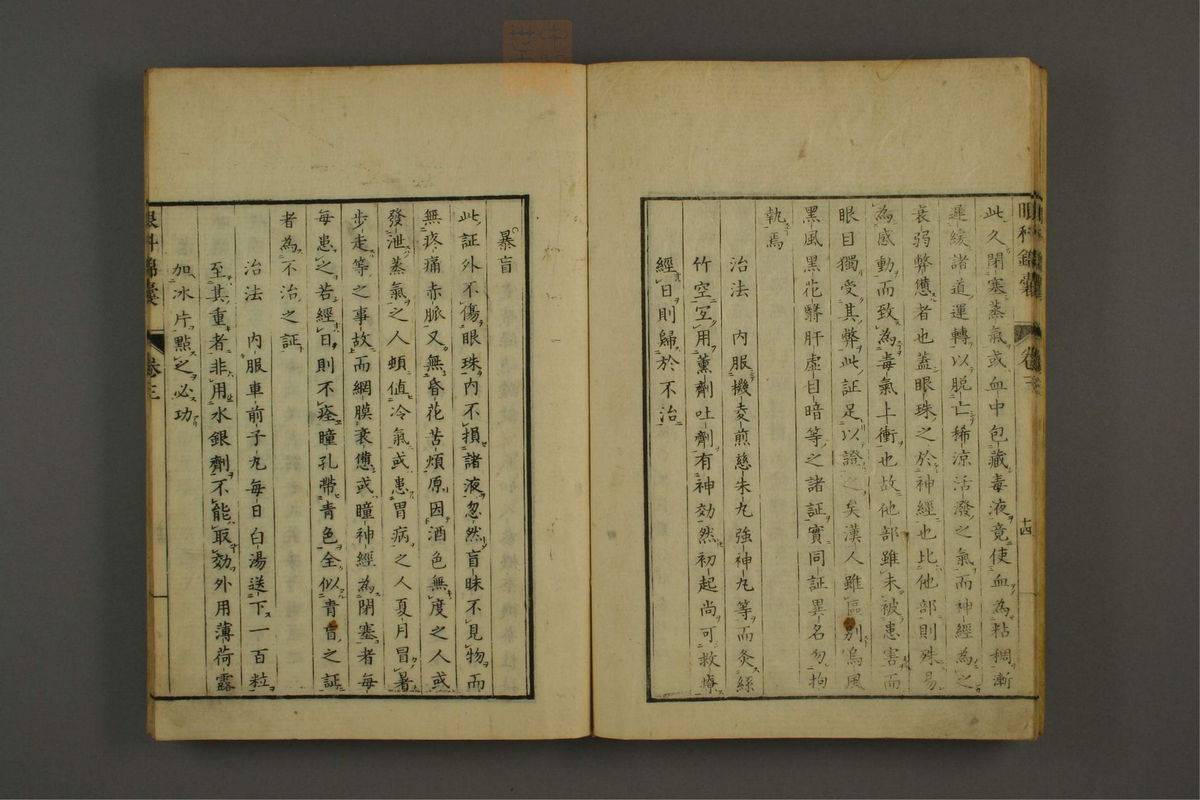 眼科錦囊 卷三 十四
此久閉塞蒸氣或血中包藏毒液竟使血為粘稠漸
遲緩諸道運轉以脫亡稀涼活潑之氣而神經為之
衰弱弊憊者也蓋眼珠之於神經也比他部則殊易
為感動而致為毒氣上衝也故他部雖未被患害而
眼目獨受其弊此証足以證之矣漢人雖區別烏風
黑風黑花翳肝虛目暗等之諸証實同証異名勿拘
執焉
治法 內服授凌煎慈朱丸強神丸等而灸絲
竹空用薰劑吐劑有神効然初起尚可救療
經日則歸於不治
暴盲
此証外不傷眼珠內不損諸液忽然盲昧不見物而
無疼痛赤脈又無昏花苦煩原因酒色無度之人或
發泄蒸氣之人頓値冷氣或患胃病之人夏月冒暑
步走等之事故而網膜衰憊或瞳神經為閉塞者每
每患之若經日則不痊瞳孔帶青色全似青盲之証
者為不治之証
治法 內服車前子丸每日白湯送下一百粒
至其重者非用水銀劑不能取効外用薄荷露
加冰片點之必功
眼科錦囊 卷三